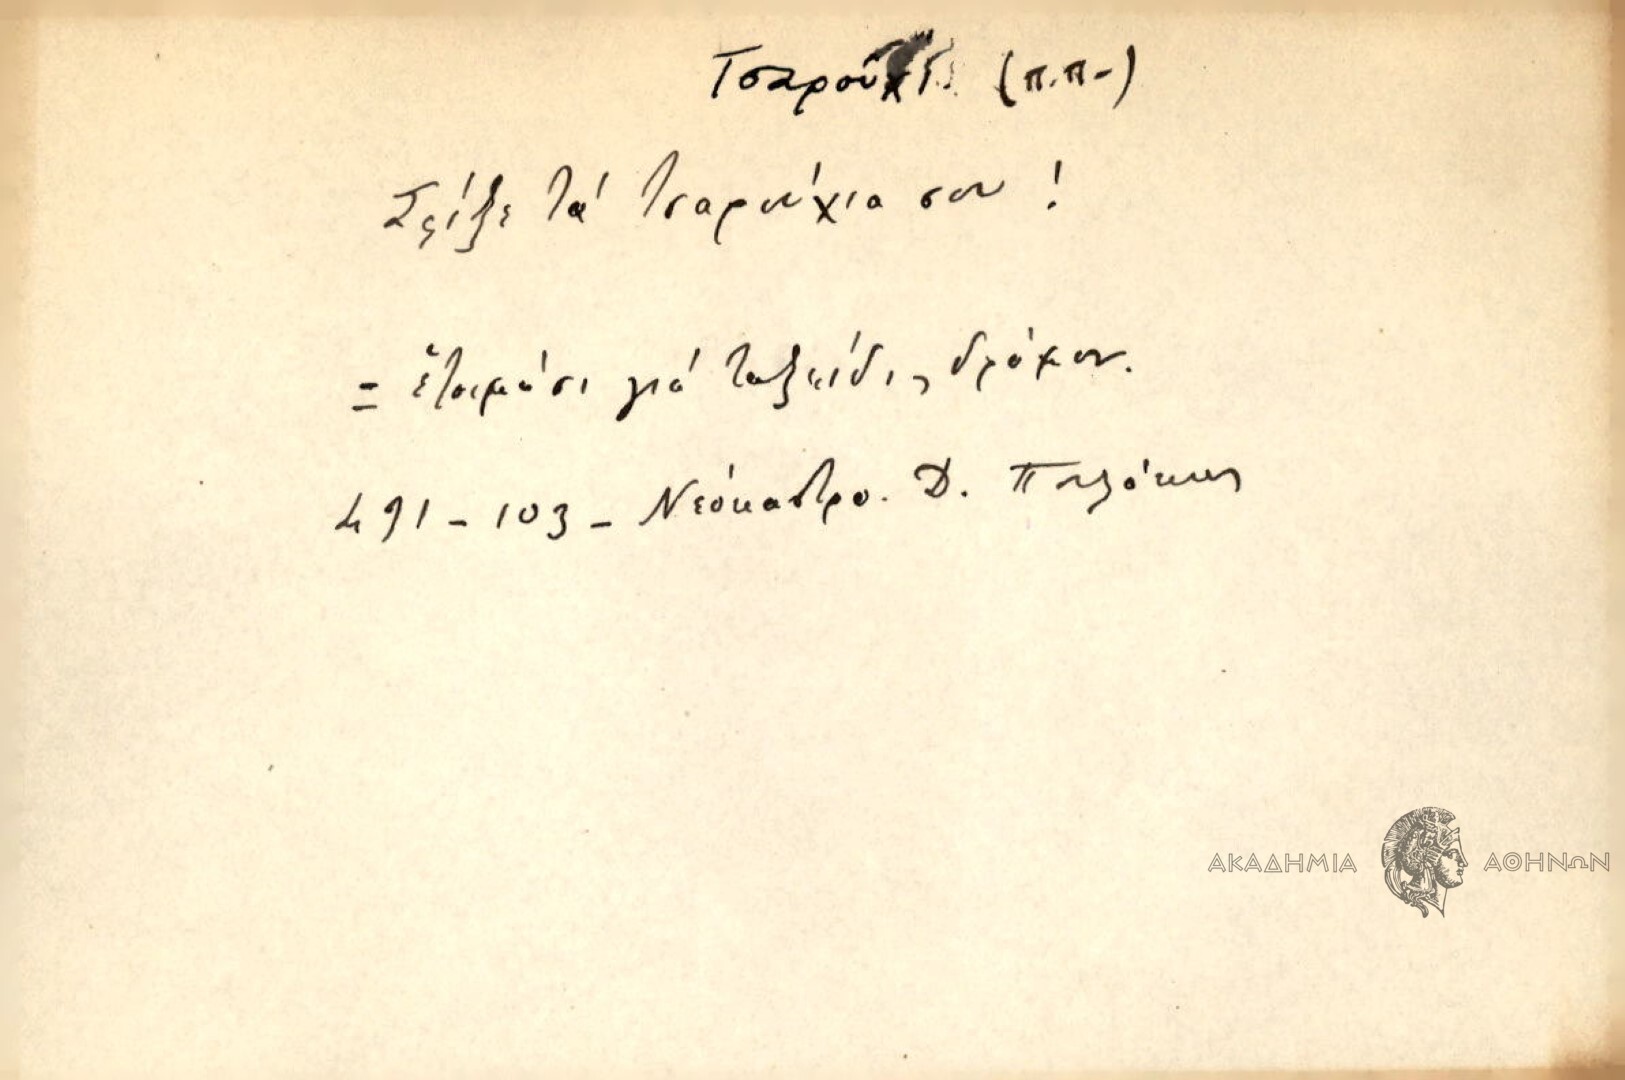 Τσαροῦχι (π.π.)
Σφίξε τά τσαρούχια σου!
= ἑτοιμάσ γιά ταξείδι, δρόμον.
491 - 103 - Νεόκαστρο. Δ.
ΑΚΑΔΗΜΙΑ ΑΘΗΝΩΝ